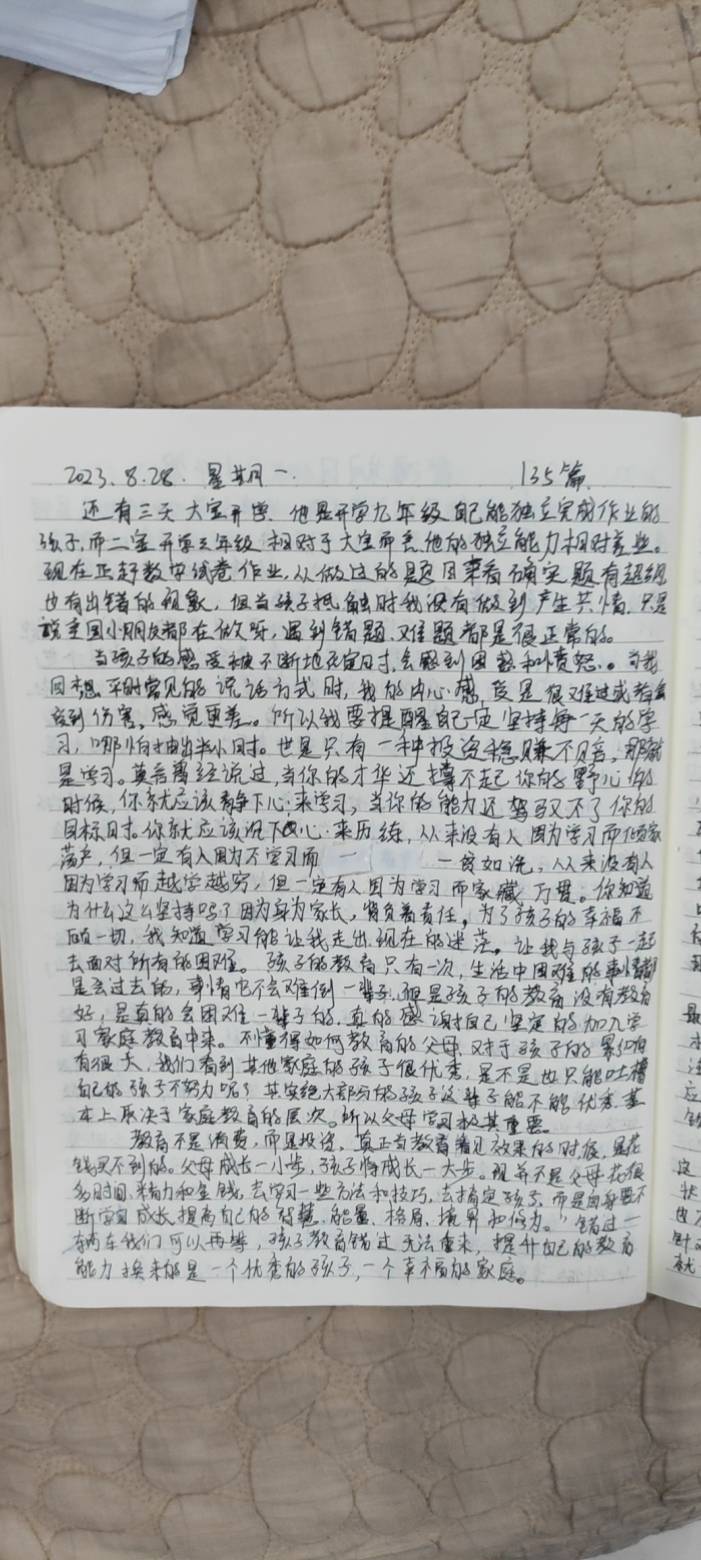 2023.8.28. 星期一. 135篇
还有三天大宝开学.他是开学九年级自己能独立完成作业的
孩子,而二宝开学三年级相对于大宝而言,他的独立能力相对差些。
现在正赶数学试卷作业,从做过的题目来看确实题有超纲
也有出错的现象,但当孩子抵触时我没有做到产生共情.只是
说全国小朋友都在做呀,遇到错题、难题都是很正常的。
当孩子的感受被不断地否定时,会感到困惑和愤怒。当我
回想平时常见的说话方式时,我的内心感受是很难过或者会
受到伤害,感觉更差。所以我要提醒自己一定坚持每一天的学
习,哪怕抽出半小时。世是只有一种投资稳赚不赔,那就
是学习。莫言曾经说过,当你的才华还撑不起你的野心的
时候,你就应该静下心来学习,当你的能力还驾驭不了你的
目标时.你就应该沉下心来历练,从来没有人因为学习而倾家
荡产,但一定有人因为不学习而一 一贫如洗,从来没有人
因为学习而越学越穷,但一定有人因为学习而家藏万贯。你知道
为什么这么坚持吗?因为身为家长,背负着责任,为了孩子的幸福不
顾一切,我知道学习能让我走出现在的迷茫。让我与孩子一起
去面对所有的困难。孩子的教育只有一次,生活中困难的事情都
是会过去的,事情它不会难倒一辈子,但是孩子的教育没有教育
好,是真的会困难一辈子的,真的感谢自己坚定的加入学
习家庭教育中来。不懂得如何教育的父母对于孩子的影响
有很大,我们看到其他家庭的孩子很优秀,是不是也只能吐槽
自己的孩子不努力呢?其实绝大部分的孩子这辈子能不能优秀基
本上取决于家庭教育的层次。所以父母学习极其重要。
教育不是消费,而是投资,真正当教育看见效果的时候,是花
钱买不到的。父母成长一小步,孩子将成长一大步。现并不是父母花很
多时间.精力和金钱,去学习一些方法和技巧,去搞定孩子,而是自身要不
断学习成长,提高自己的智慧、能量、格局、境界和作为。错过一
辆车我们可以再等,孩子教育错过无法重来,提升自己的教育
能力换来的是一个优秀的孩子,一个幸福的家庭。